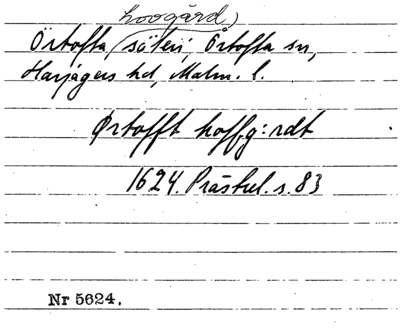 hovgård)
Örtofta (säteri, Örtofta sn,
Harjagers hd, Malm. l.
Ørtofft hoffg:rdt
1624. Prästrel. s. 83
Nr 5624.